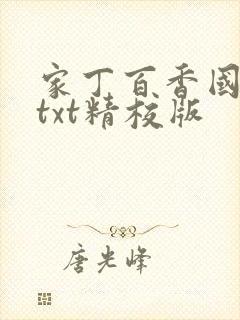 家丁百香国
txt精校版
唐光峰